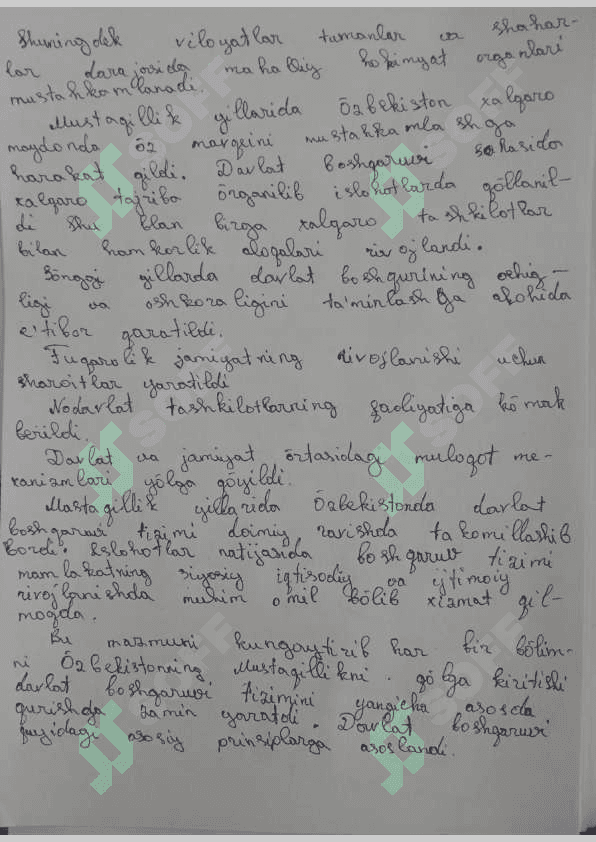 Shuningdek viloyatlar tumanlar va shahar-
lar darajasida mahalliy hokimyat organlari
mustahkamlanadi.
Mustaqillik yillarida Özbekiston xalqaro
maydonda öz mavqeini mustahkamlashga
harakat qildi. Davlat boshqaruvi sohasida
xalqaro tajriba örganilib islohotlarda qöllanil-
di shu blan birga xalqaro tashkilotlar
bilan hamkorlik aloqalari rivojlandi.
Sönggi yillarda davlat boshqurining ochiq-
ligi va oshkoraligini ta'minlashga alohida
e'tibor qaratildi.
Fuqarolik jamiyatning rivojlanishi uchun
sharoitlar yaratildi
Nodavlat tashkilotlarning faoliyatiga kömak
berildi.
Davlat va jamiyat örtasidagi muloqot me-
xanizmlari yölga qöyildi.
Mustaqillik yillarida Özbekistonda davlat
boshqaruvi tizimi doimiy ravishda takomillashib
bordi. Islohotlar natijasida boshqaruv tizimi
mamlakatning siyosiy iqtisodiy va ijtimoiy
rivojlanishda muhim omil bölib xizmat qil-
moqda.
Bu mazmuni kungaytirib har bir bölim-
ni Özbekistonning Mustaqillikni qölga kiritishi
davlat boshqaruvi tizimini yangicha asosda
qurishga zamin yaratdi. Davlat boshqaruvi
quyidagi asosiy prinsiplarga asoslandi.
SOFF
SOFF
SOFF
SOFF
SOFF
SOFF